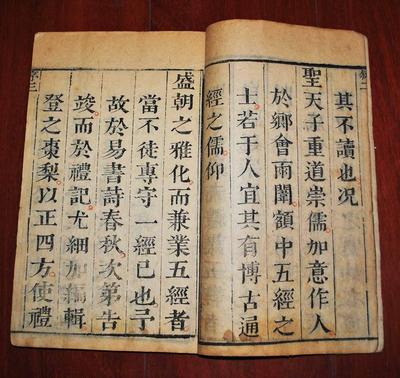 其不讀也况
聖天子重道崇儒加意作人
於鄉會兩闈額中五經之
士若干人宜其有博古通
經之儒仰
盛朝之雅化而兼業五經者
當不徒専守一經已也予
故於易書詩春秋次第告
竣而於禮記尤細加編輯
登之棗梨以正四方使禮